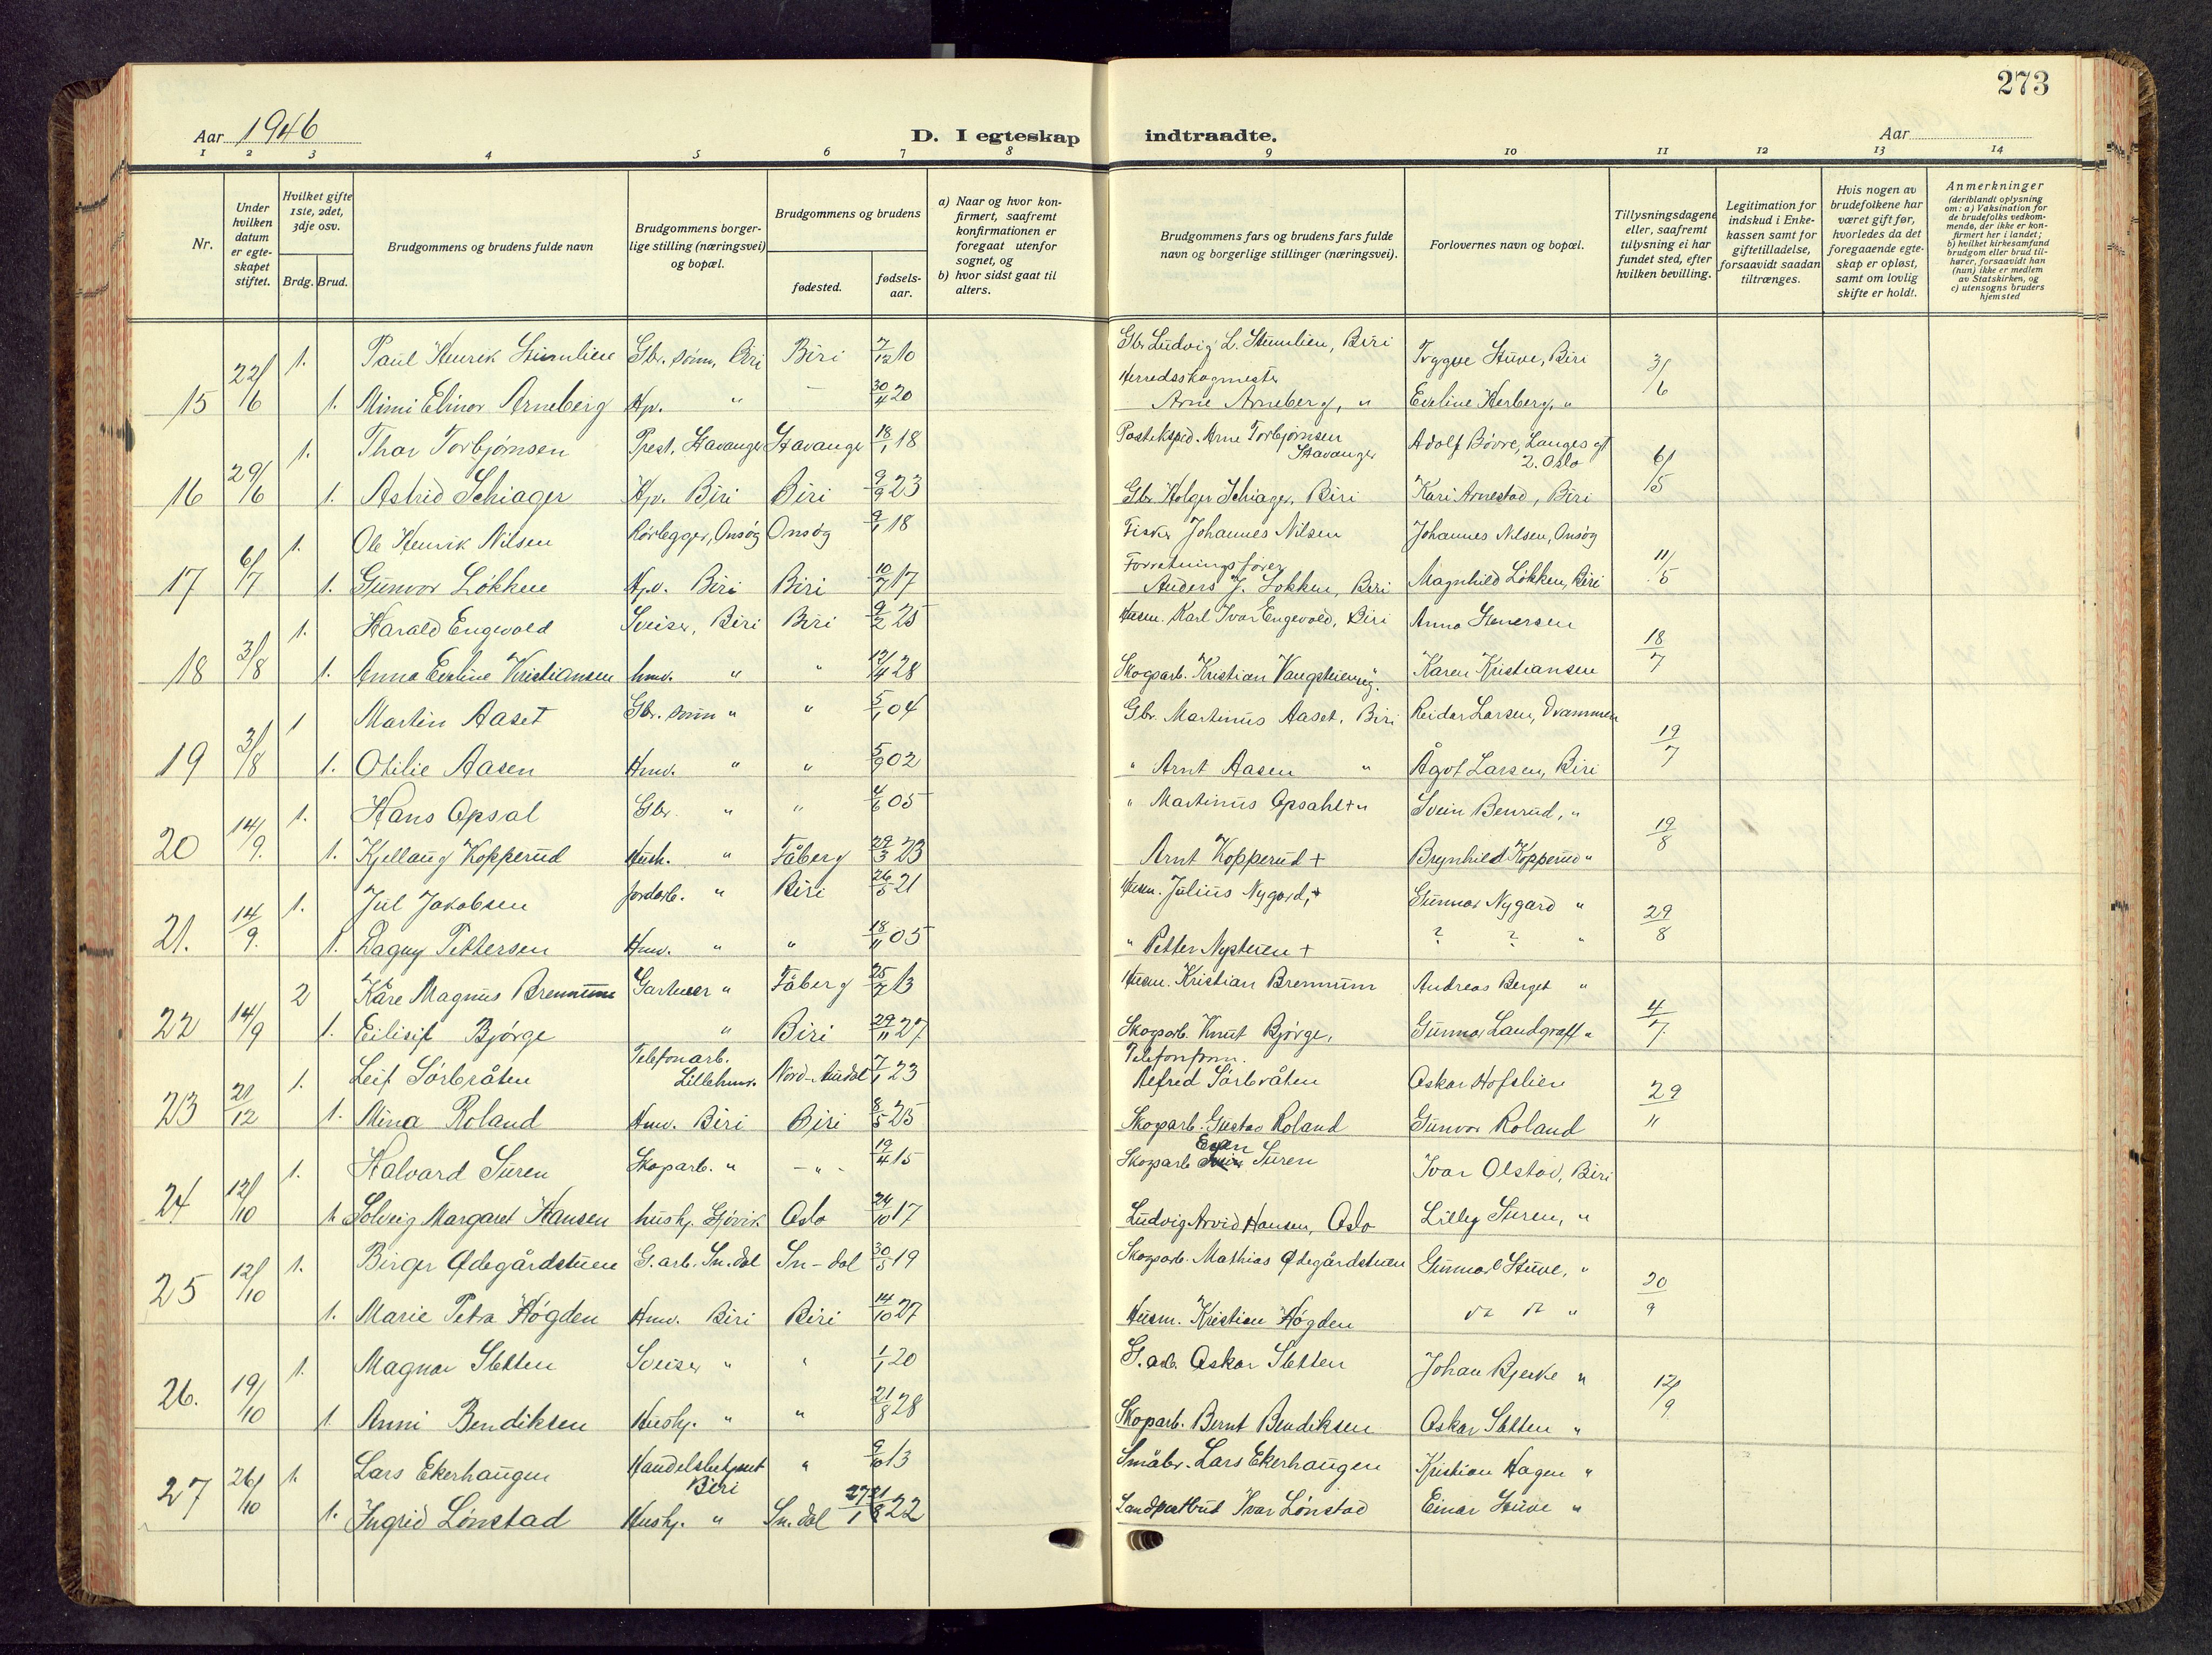 273
Aar 1946 D. I egteskap indtraadte. Aar
1 2 3 4 5 6 7 8 9 10 11 12 13 14
Nr.
Under hvilken datum er egte-skapet stiftet.
Hvilket gifte 1ste, 2det, 3dje osv.
Brdg. Brud.
Brudgommens og brudens fulde navn
Brudgommens borger-lige stilling (næringsvei) og bopæl.
Brudgommens og brudens
fødested.
fødsels-aar.
a) Naar og hvor kon-firmert, saafremt konfirmationen er foregaat utenfor sognet, og
b) hvor sidst gaat til alters.
Brudgommens fars og brudens fars fulde navn og borgerlige stillinger (næringsvei).
Forlovernes navn og bopæl.
Tillysningsdagene eller, saafremt tillysning ei har fundet sted, efter hvilken bevilling.
Legitimation for indskud i Enke-kassen samt for giftetilladelse, forsaavidt saadan tiltrænges.
Hvis nogen av brudefolkene har været gift før, hvorledes da det foregaaende egte-skap er opløst, samt om lovlig skifte er holdt.
Anmerkninger (deriblandt oplysning om: a) Vaksination for de brudefolks vedkom-mende, der ikke er kon-firmert her i landet; b) hvilket kirkesamfund brudgom eller brud til-hører, forsaavidt han (hun) ikke er medlem av Statskirken, og c) utensogns bruders hjemsted
15 22/6 1. Paul Henrik Stumlien Gbr. sønn, Biri Biri 7/12 10 Gbr. Ludvig L. Stumlien, Biri Trygve Stuve, Biri 3/6
1. Mimi Elinor Arneberg Hp. " — 30/4 20 Herredsskogmester Arne Arneberg, " Eveline Herberg, "
16 29/6 1. Thor Torbjørnsen Prest, Stavanger Stavanger 18/1 18 Posteksped. Arne Torbjørnsen Stavanger Adolf Bøvre, Langes gt 2. Oslo 6/5
1. Astrid Schiager Hp. Biri Biri 9/9 23 Gbr. Holger Schiager, Biri Kari Arnestad, Biri
17 6/7 1. Ole Henrik Nilsen Rørlegger, Onsøy Onsøy 9/1 18 Fisker Johannes Nilsen Johannes Nilsen, Onsøy 11/5
1. Gunvor Løkken Hp. Biri Biri 10/7 17 Forretningsfører Anders J. Løkken, Biri Magnhild Løkken, Biri
18 3/8 1. Harald Engevold Sveiser, Biri Biri 9/2 25 Husm. Karl Ivar Engevold, Biri Anna Stenersen 18/7
1. Anna Eveline Kristiansen hmv. " " 12/4 28 Skogsarb. Kristian Vangstuen Karen Kristiansen
19 3/8 1 Martin Aaset Gbr. sønn " " 5/1 04 Gbr. Martinus Aaset, Biri Reidar Larsen, Drammen 19/7
1. Otilie Aasen Hmv. " " 5/9 02 " Arnt Aasen " Ågot Larsen, Biri
20 14/9. 1. Hans Opsal Gbr. " " 4/6 05 " Martinus Opsahl + " Svein Benrud, " 19/8
1. Kjellaug Kopperud Hush. " Fåberg 29/3 23 Arnt Kopperud + Brynhild Kopperud "
21. 14/9. 1. Jul Jakobsen Jordarb. " Biri 26/5 21 Husm. Julius Nygard, + Gunnar Nygard " 29/8
1. Dagny Pettersen Hmv. " " 18/11 05 " Petter Nystuen + ? ? "
22 14/9 2 Kåre Magnus Bremmum Gartner " Fåberg 25/7 13 Husm. Kristian Bremmum Andreas Berget " 4/7.
1. Eilisif Bjørge " Biri 29/11 27 Skogsarb. Knut Bjørge. Gunnar Landgraff "
23 21/12 1. Leif Sørbråten Telefonarb. Lillehmr. Nord-Aurdal 7/1 23 Telefonform. Alfred Sørbråten Oskar Hofslien 29/11
1. Mina Roland Hmv. Biri Biri 8/5 25 Skogsarb. Gustav Roland Gunvor Roland
24 12/10 1. Halvard Suren Skogarb. " - " - 19/4 15 Skogsarb Even Suren Ivar Olstad, Biri
1. Solveig Margaret Hansen hushj. Gjøvik Oslo 24/10 17 Ludvig Arvid Hansen, Oslo Lilly Suren, "
25 12/10 1. Birger Ødegårdstuen G.arb. Sn.dal Sn-dal 30/5 19 Skogsarb. Mathias Ødegårdstuen Gunnar Stuve, " 20/9
1. Marie Petra Høgden Hmv. Biri Biri 14/10 27 Husm. Kristian Høgden "
26. 19/10 1. Magnar Sletten Sveiser " " 1/1 20 G.arb. Oskar Sletten Johan Bjerke " 12/9
1. Anni Bendiksen Hushj. " " 21/8 28 Skogarb. Bernt Bendiksen Oskar Sletten "
27 26/10 1. Lars Ekerhaugen Handelsbetjent Biri " 9/6 13 Småbr. Lars Ekerhaugen Kristian Hagen "
1. Ingrid Lønstad Hushj. " Sn.dal 27/1 22 Landpostbud Ivar Lønstad Einar Stuve "